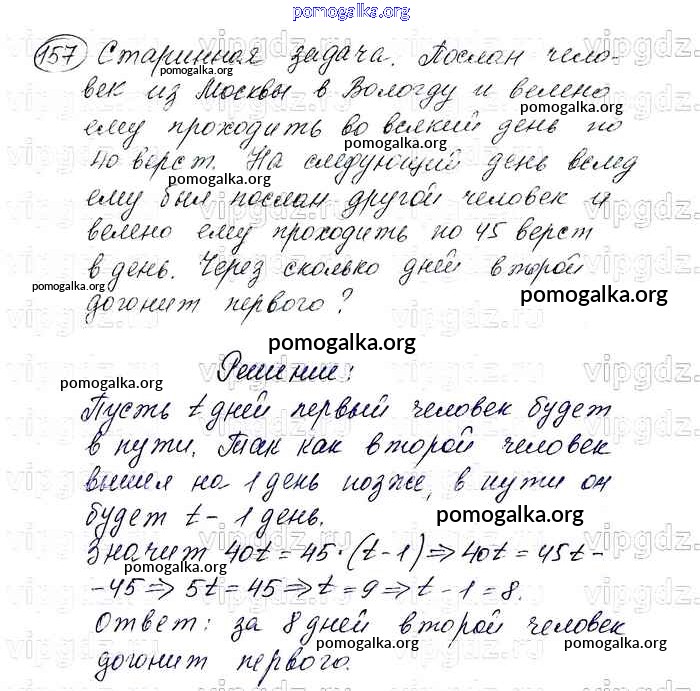 pomogalka.org
157 Старинная задача. Послан чело-
pomogalka.org
век из Москвы в Вологду и велено
pomogalka.org
ему проходить во всякий день по
40 верст. На следующий день вслед
pomogalka.org
ему был послан другой человек и
велено ему проходить по 45 верст
в день. Через сколько дней второй
pomogalka.org
pomogalka.org
догонит первого?
pomogalka.org
Решение:
pomogalka.org
Пусть t дней первый человек будет
в пути. Так как второй человек
вышел на 1 день позже, в пути он
будет t - 1 день.
pomogalka.org
Значит 40t = 45·(t-1) ⇒ 40t = 45t-
-45 ⇒ 5t = 45 ⇒ t = 9 ⇒ t - 1 = 8.
pomogalka.org
Ответ: за 8 дней второй человек
pomogalka.org
pomogalka.org
догонит первого.